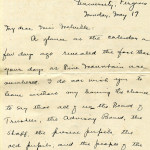 University, Virginia
Sunday, May 19
My dear Miss Melville,
A glance at the calendar a
few days ago revealed the fact that
your days at Pine Mountain are
numbered. I do not wish you to
leave without my having the chance
to say that all of us the Board of
Trustees, the Advisory Board, the
staff the present pupils, the
old pupils, and the people of the